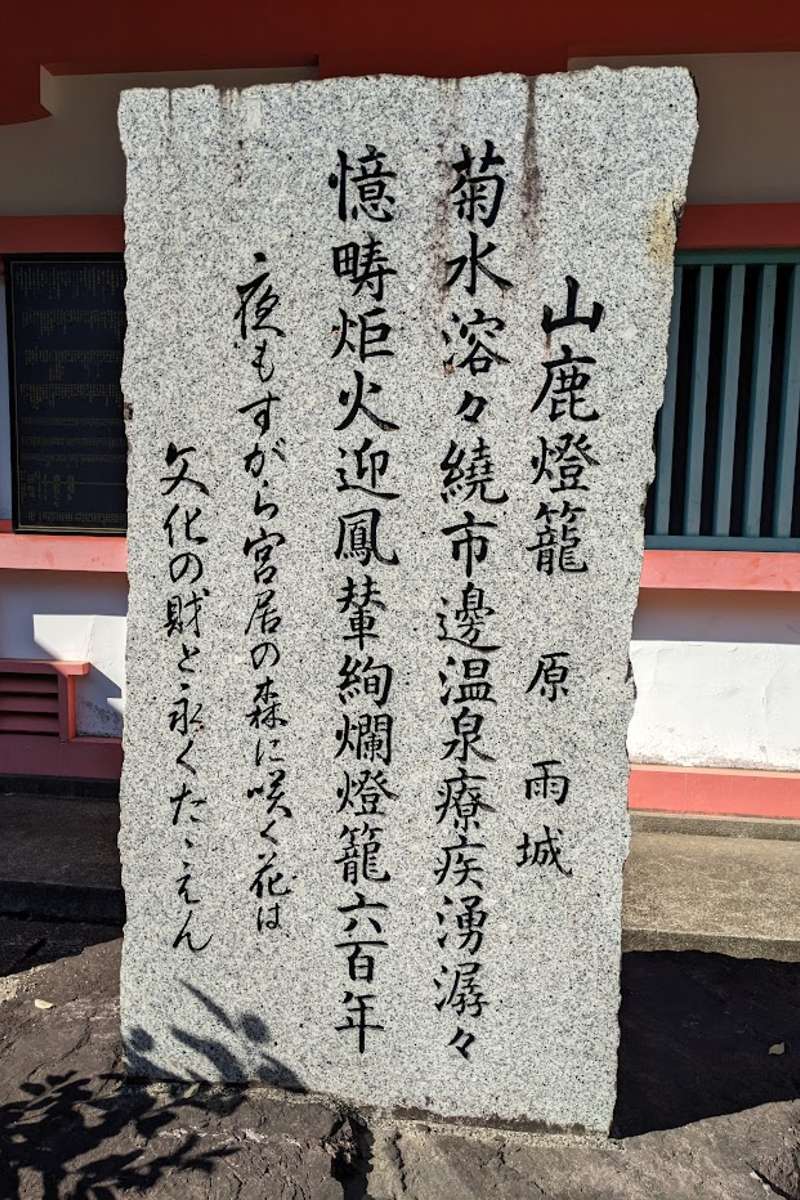 山鹿燈籠 原雨城
菊水溶々繞市邊温泉療疾湧潺々
憶疇炬火迎鳳輦絢爛燈籠六百年
夜もすがら宮居の森に咲く花は
文化の財と永くたゝえん